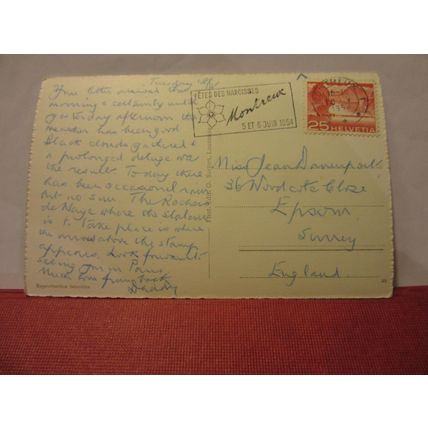 Tuesday
Your letter arrived this
morning & certainly until
yesterday afternoon the
weather has been good
Black clouds gathered &
a prolonged deluge was
the result. Today there
has been occasional rain
but no sun. The Rochers
de Naye where the
is to take place is where
the on the stamp
appears. Look forward to
seeing you in Paris
Much love from
Daddy
FÊTES DES NARCISSES
Montreux
5 ET 6 JUIN 1954
25 HELVETIA
Miss Jean Davenport
36 Woodcote Close
Epsom
Surrey
England